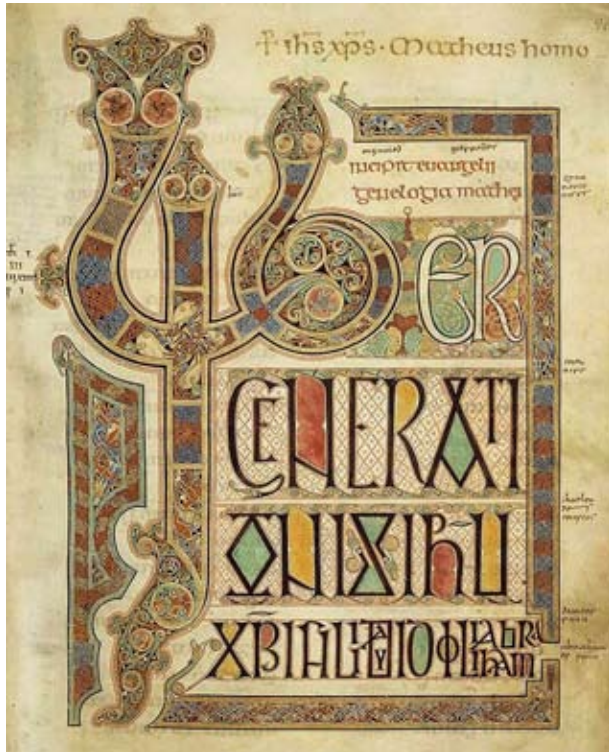 + ihs xps · Matheus homo
incipit euangelii
genelogia mathei
LIBER
GENERATI
ONISIHU
XPI FILII DAVID FILII ABRAHAM